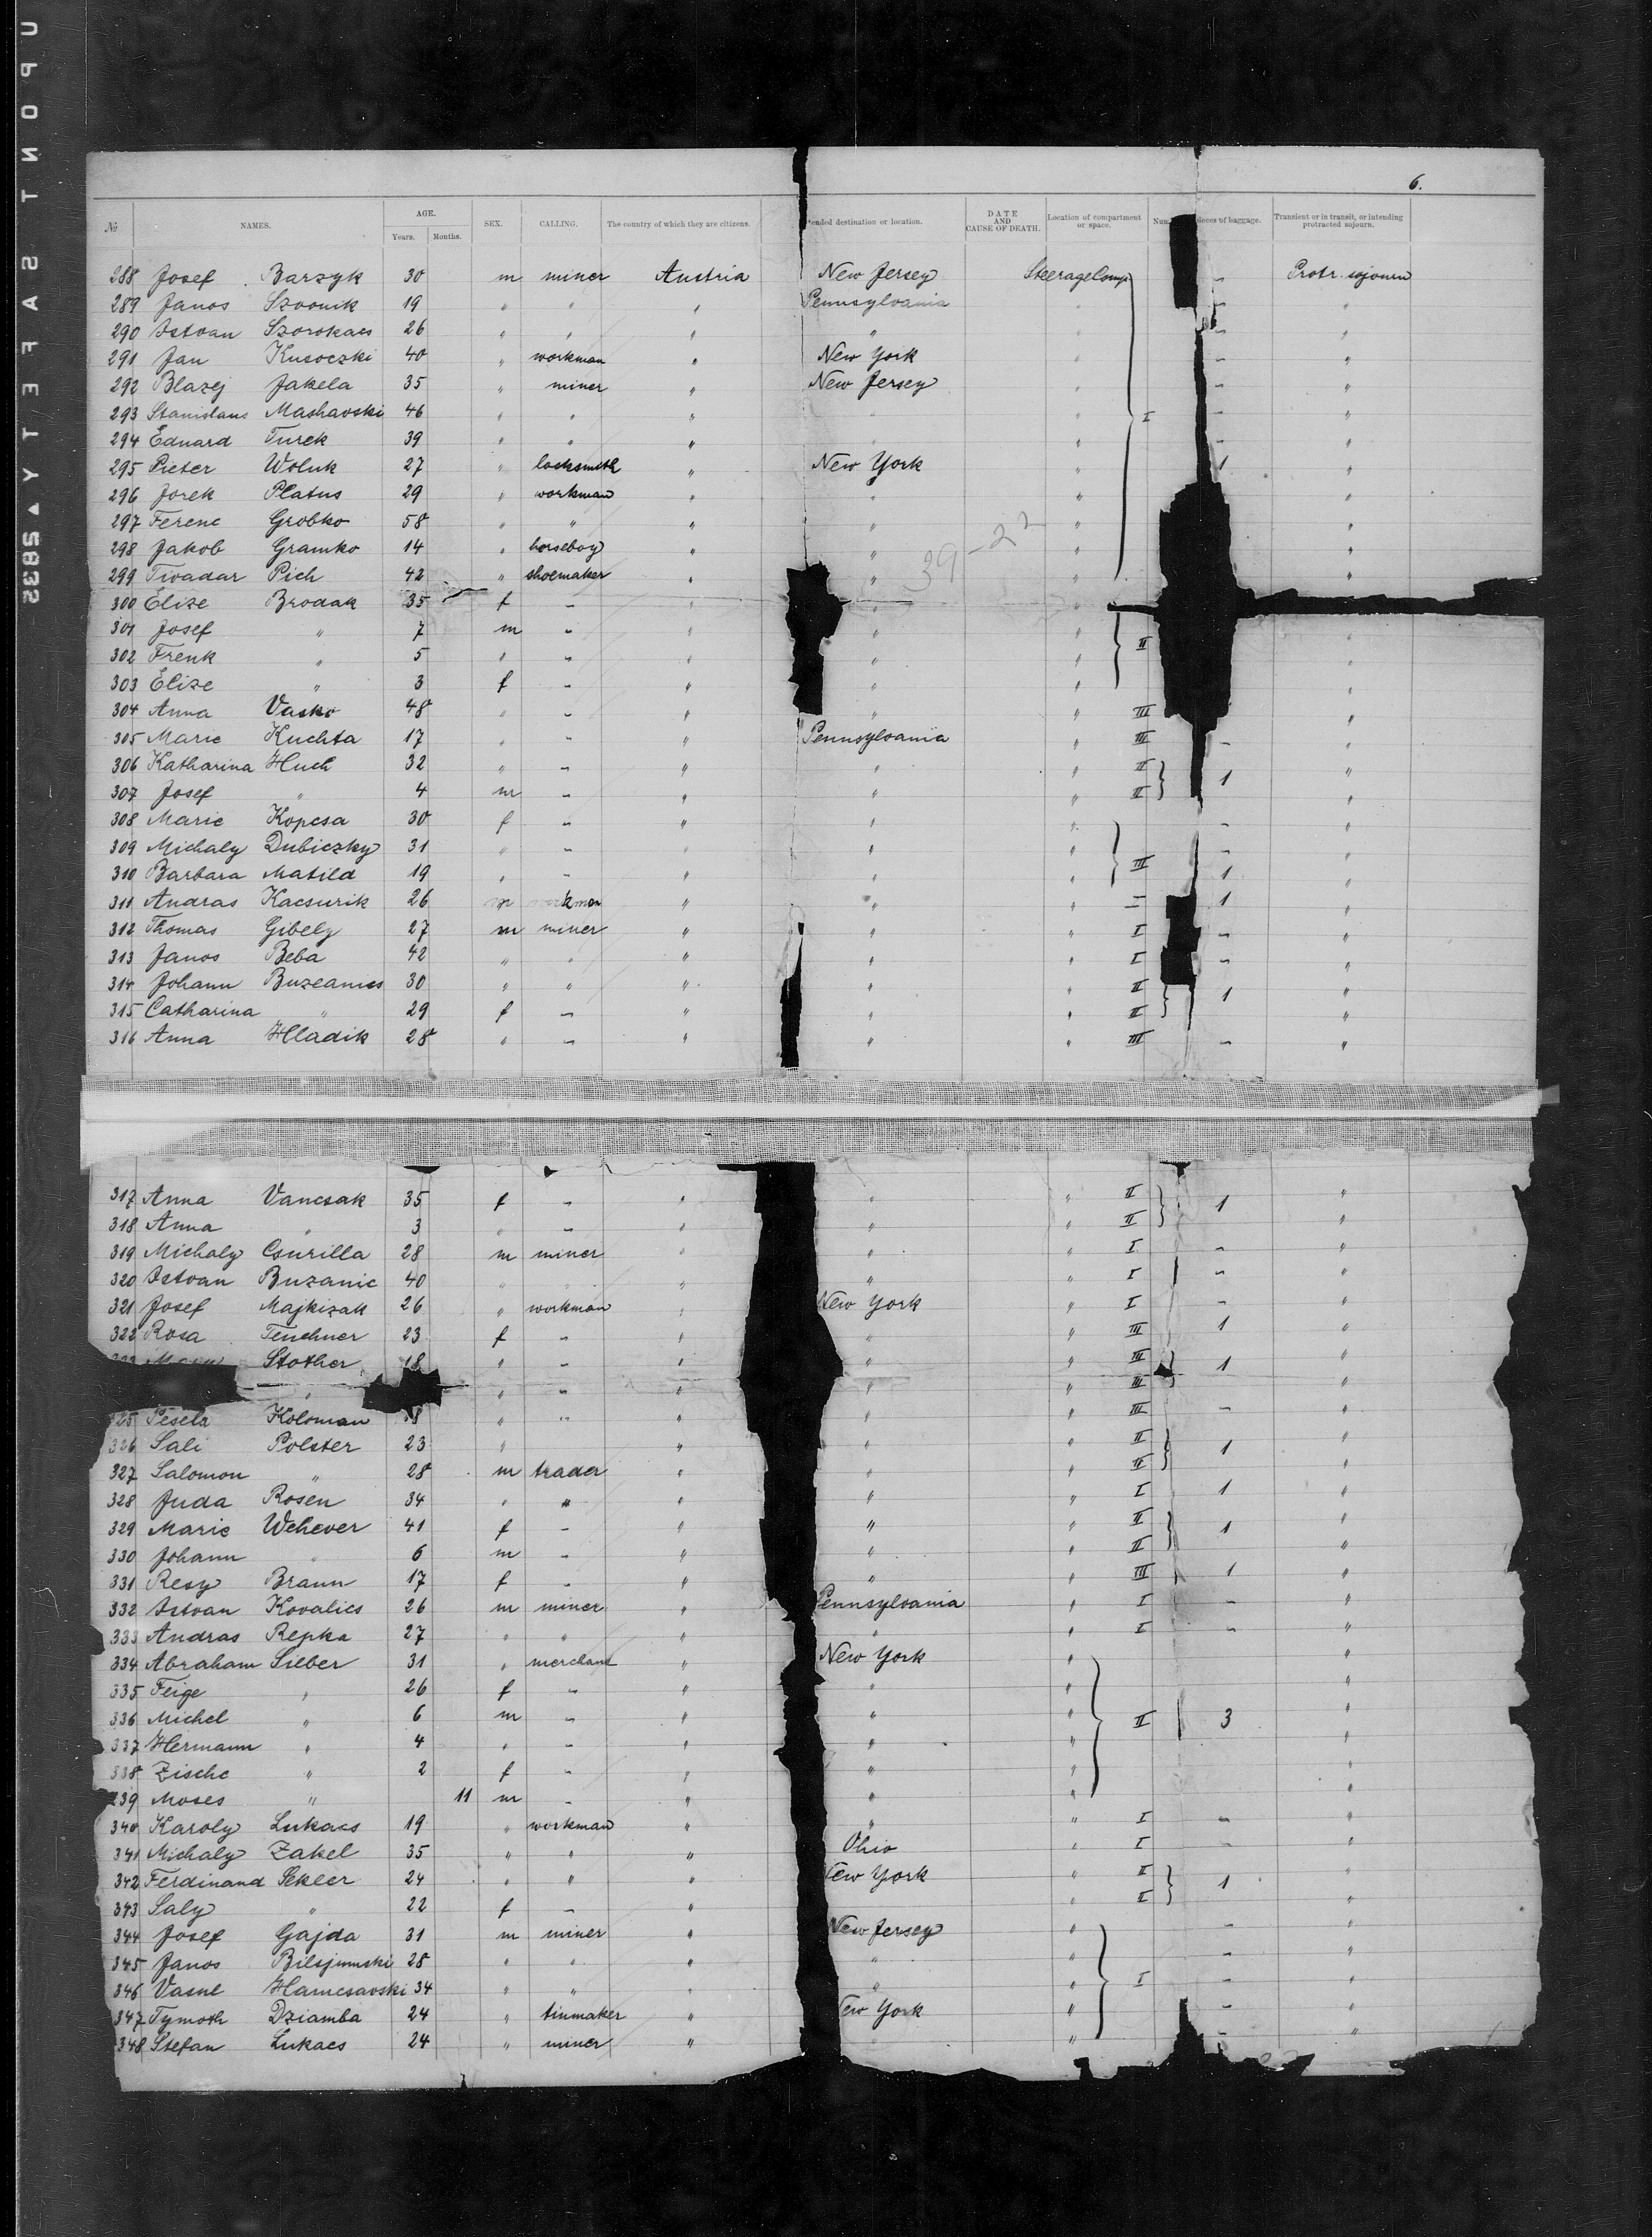 6.
№ NAMES. AGE. Years. Months. SEX. CALLING. The country of which they are citizens. ended destination or location. DATE AND CAUSE OF DEATH. Location of compartment or space. Num pieces of baggage. Transient or in transit, or intending protracted sojourn.
288 Josef Barzyk 30 m miner Austria New Jersey Steerage Comp - Protr. sojourn
289 Janos Szvonik 19 " " " Pennsylvania " "
290 Istvan Szorokacs 26 " " " " " - "
291 Jan Kusoczki 40 " workman " New York " - "
292 Blazej Jakela 35 " miner " New Jersey " - "
293 Stanislaus Mashavski 46 " " " " " I - "
294 Eduard Turek 39 " " " " " - "
295 Pieter Woluk 27 " locksmith " New York " 1 "
296 Jorek Platus 29 " workman " " " "
297 Ferenc Grobko 58 " " " " " "
298 Jakob Gramko 14 " horseboy " " " "
299 Tivadar Pich 42 " shoemaker " " " "
300 Elise Brodak 35 f - " " "
301 Josef " 7 m - " " " "
302 Frenk " 5 " - " " " II "
303 Elise " 3 f - " " " "
304 Anna Vasko 48 " - " " " III "
305 Marie Kuchta 17 " - " Pennsylvania " III - "
306 Katharina Huch 32 " - " " " II 1 "
307 Josef " 4 m - " " " II "
308 Marie Kopcsa 30 f - " " " - "
309 Michaly Dubiczky 31 " - " " " III - "
310 Barbara Matild 19 " - " " " 1 "
311 Andras Kacsurik 26 m workman " " " 1 "
312 Thomas Gibely 27 m miner " " " I - "
313 Janos Beba 42 " " " " " I - "
314 Johann Buzeanics 30 " " " " " II 1 "
315 Catharina " 29 f - " " " II "
316 Anna Hladik 28 " - " " " III - "
317 Anna Vancsak 35 f - " " " II 1 "
318 Anna " 3 " - " " " II "
319 Michaly Csurilla 28 m miner " " " I - "
320 Istvan Buzanic 40 " " " " " I - "
321 Josef Majkizak 26 " workman " New York " I - "
322 Rosa Tenchner 23 f - " " " III 1 "
Stother 18 " - " " " III 1 "
" " - " " " III "
325 Pesela Koloman 18 " " " " " III - "
326 Sali Polster 23 " " " " II 1 "
327 Salomon " 28 m trader " " " II "
328 Juda Rosen 34 " " " " " I 1 "
329 Marie Wehever 41 f - " " " II 1 "
330 Johann " 6 m - " " " II "
331 Resy Braun 17 f - " " " III 1 "
332 Istvan Kovalics 26 m miner " Pennsylvania " I - "
333 Andras Repka 27 " " " " " I - "
334 Abraham Silber 31 " merchant " New York " "
335 Feige " 26 f - " " " "
336 Michel " 6 m - " " " II 3 "
337 Hermann " 4 " - " " "
338 Zische " 2 f - " " " "
239 Moses " 11 m - " " " "
340 Karoly Lukacs 19 " workman " " " I - "
341 Michaly Zakel 35 " " " Ohio " I - "
342 Ferdinand Sekler 24 " " " New York " II 1 "
343 Saly " 22 f - " " I "
344 Josef Gajda 31 m miner " New Jersey " - "
345 Janos 28 " " " " " - "
346 Vasul Hamcsavski 34 " " " " " I - "
347 Tymoth Dziamba 24 " tinmaker " New York " - "
348 Stefan Lukacs 24 " miner " " - "
39 - 22